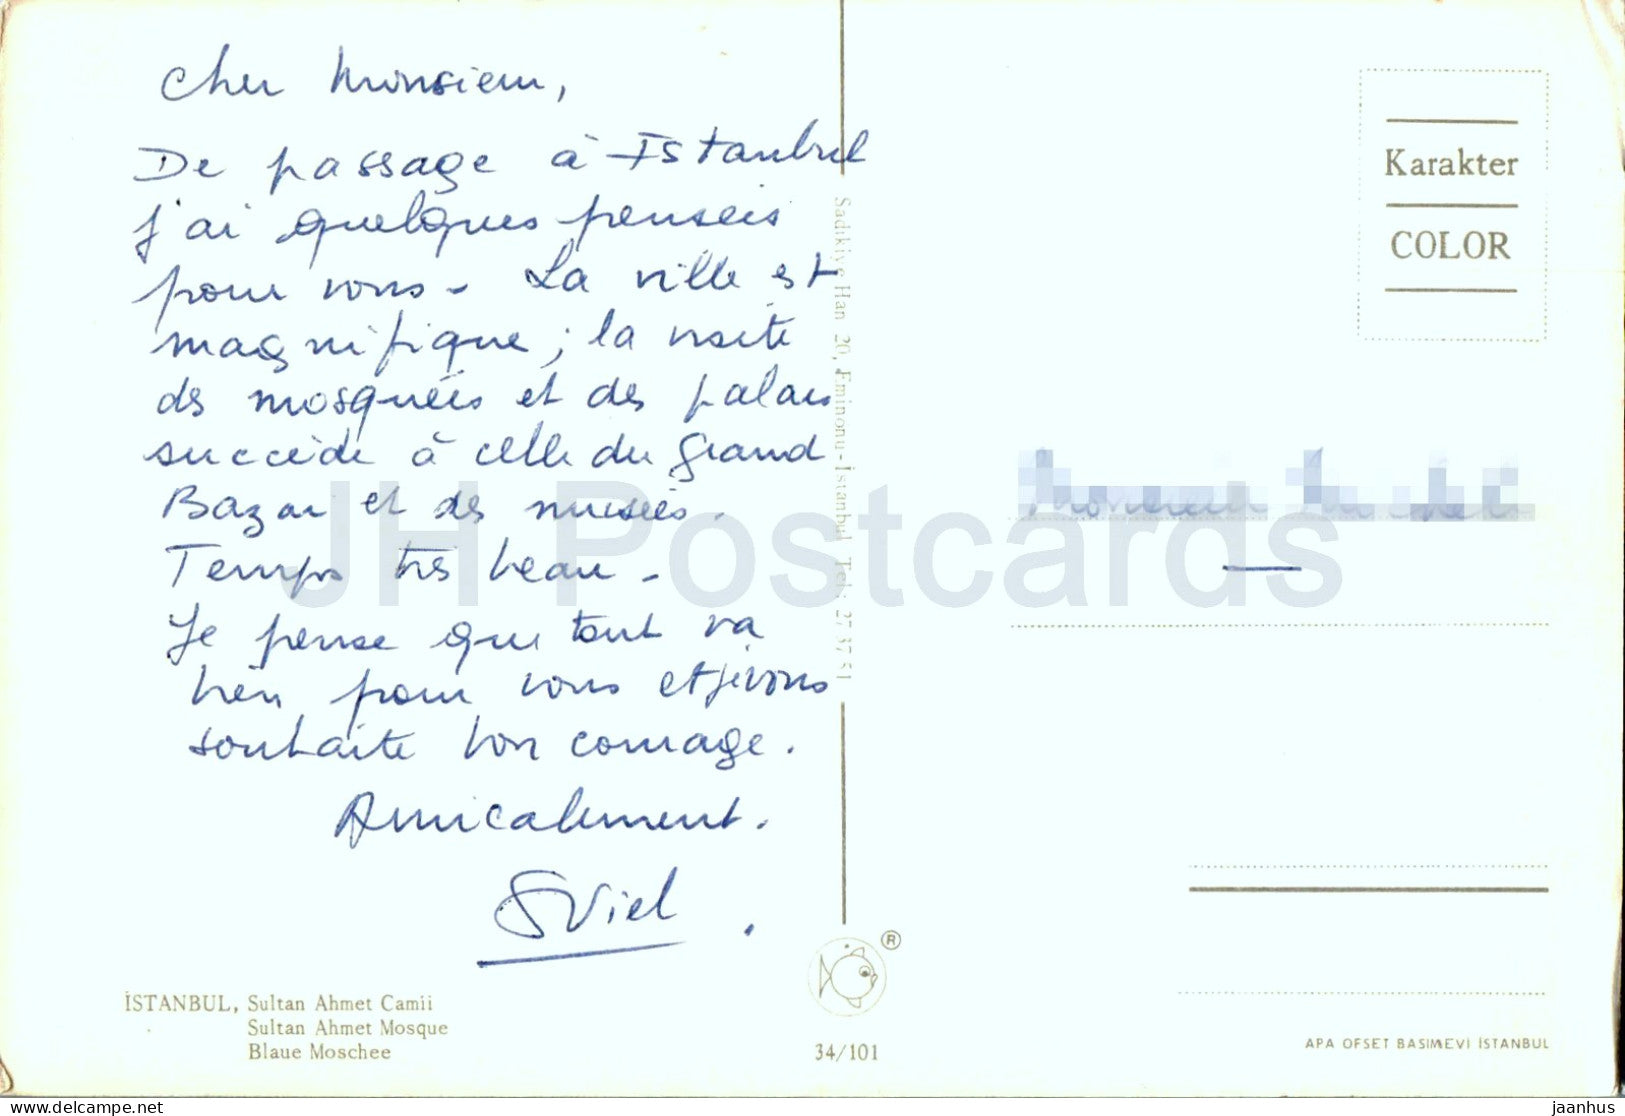 Cher Monsieur,
De passage à Istanbul
j'ai quelques pensées
pour vous - La ville est
magnifique ; la visite
des mosquées et des palais
succède à celle du Grand
Bazar et des musées.
Temps très beau -
Je pense que tout va
bien pour vous et je vous
souhaite bon courage.
Amicalement.
SViel
İSTANBUL, Sultan Ahmet Camii
Sultan Ahmet Mosque
Blaue Moschee
Sadıkiye Han 20, Eminonu-İstanbul Tel: 27 37 51
®
34/101
Karakter
COLOR
Monsieur
APA OFSET BASIMEVİ İSTANBUL
JH Postcards
https://www.delcampe.net
jaanhus